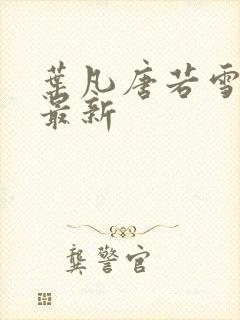 葉凡唐若雪
最新
龔警官